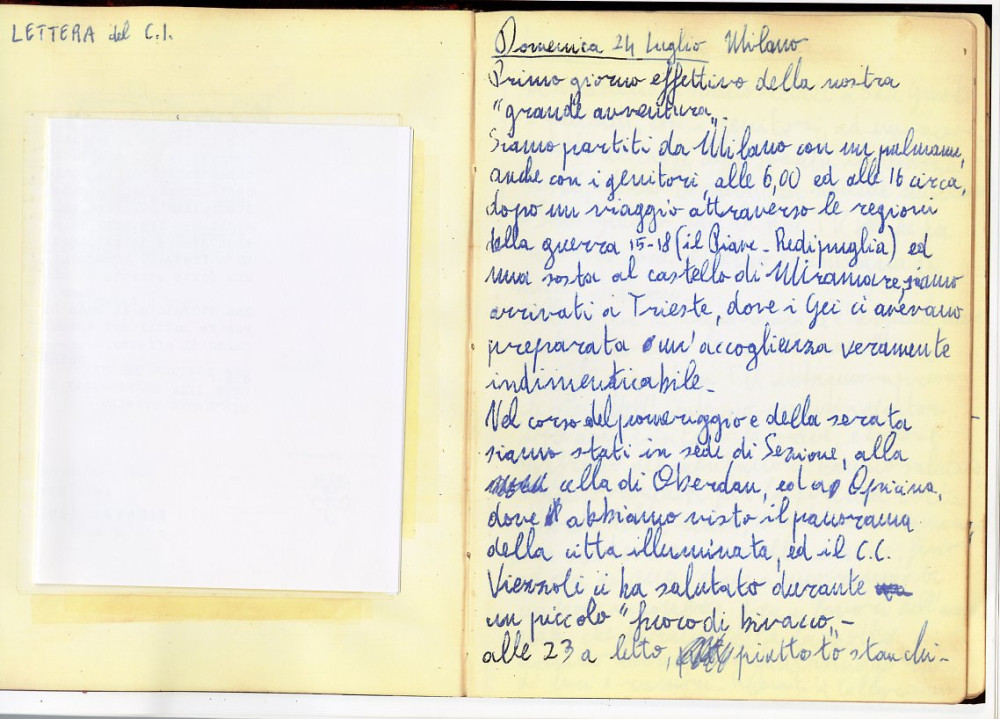 LETTERA del C.I.
Domenica 24 Luglio Milano
Primo giorno effettivo della nostra
"grande avventura".
Siamo partiti da Milano con un pulmann,
anche con i genitori, alle 6,00 ed alle 16 circa,
dopo un viaggio attraverso le regioni
della guerra 15-18 (il Piave - Redipuglia) ed
una sosta al castello di Miramare, siamo
arrivati a Trieste, dove i Gei ci avevano
preparata un'accoglienza veramente
indimenticabile -
Nel corso del pomeriggio e della serata
siamo stati in sede di Sezione, alla
cella di Oberdan, ed a Opicina,
dove abbiamo visto il panorama
della citta illuminata, ed il C.C.
Viezzoli ci ha salutato durante
un piccolo "fuoco di bivacco" -
alle 23 a letto, piuttosto stanchi -